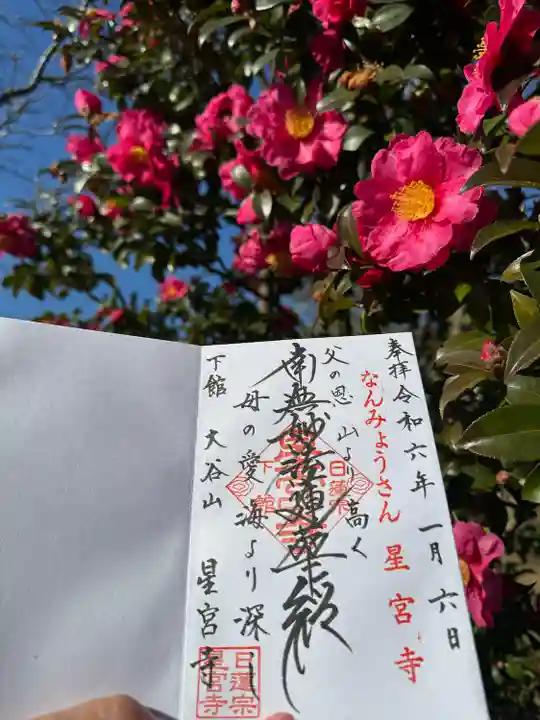 奉拝令和六年一月六日
なんみょうさん 星宮寺
父の恩 山より高く
南無妙法蓮華経
日蓮宗
下館
母の愛 海より深し
下館 大谷山 星宮寺
日蓮宗
星宮寺